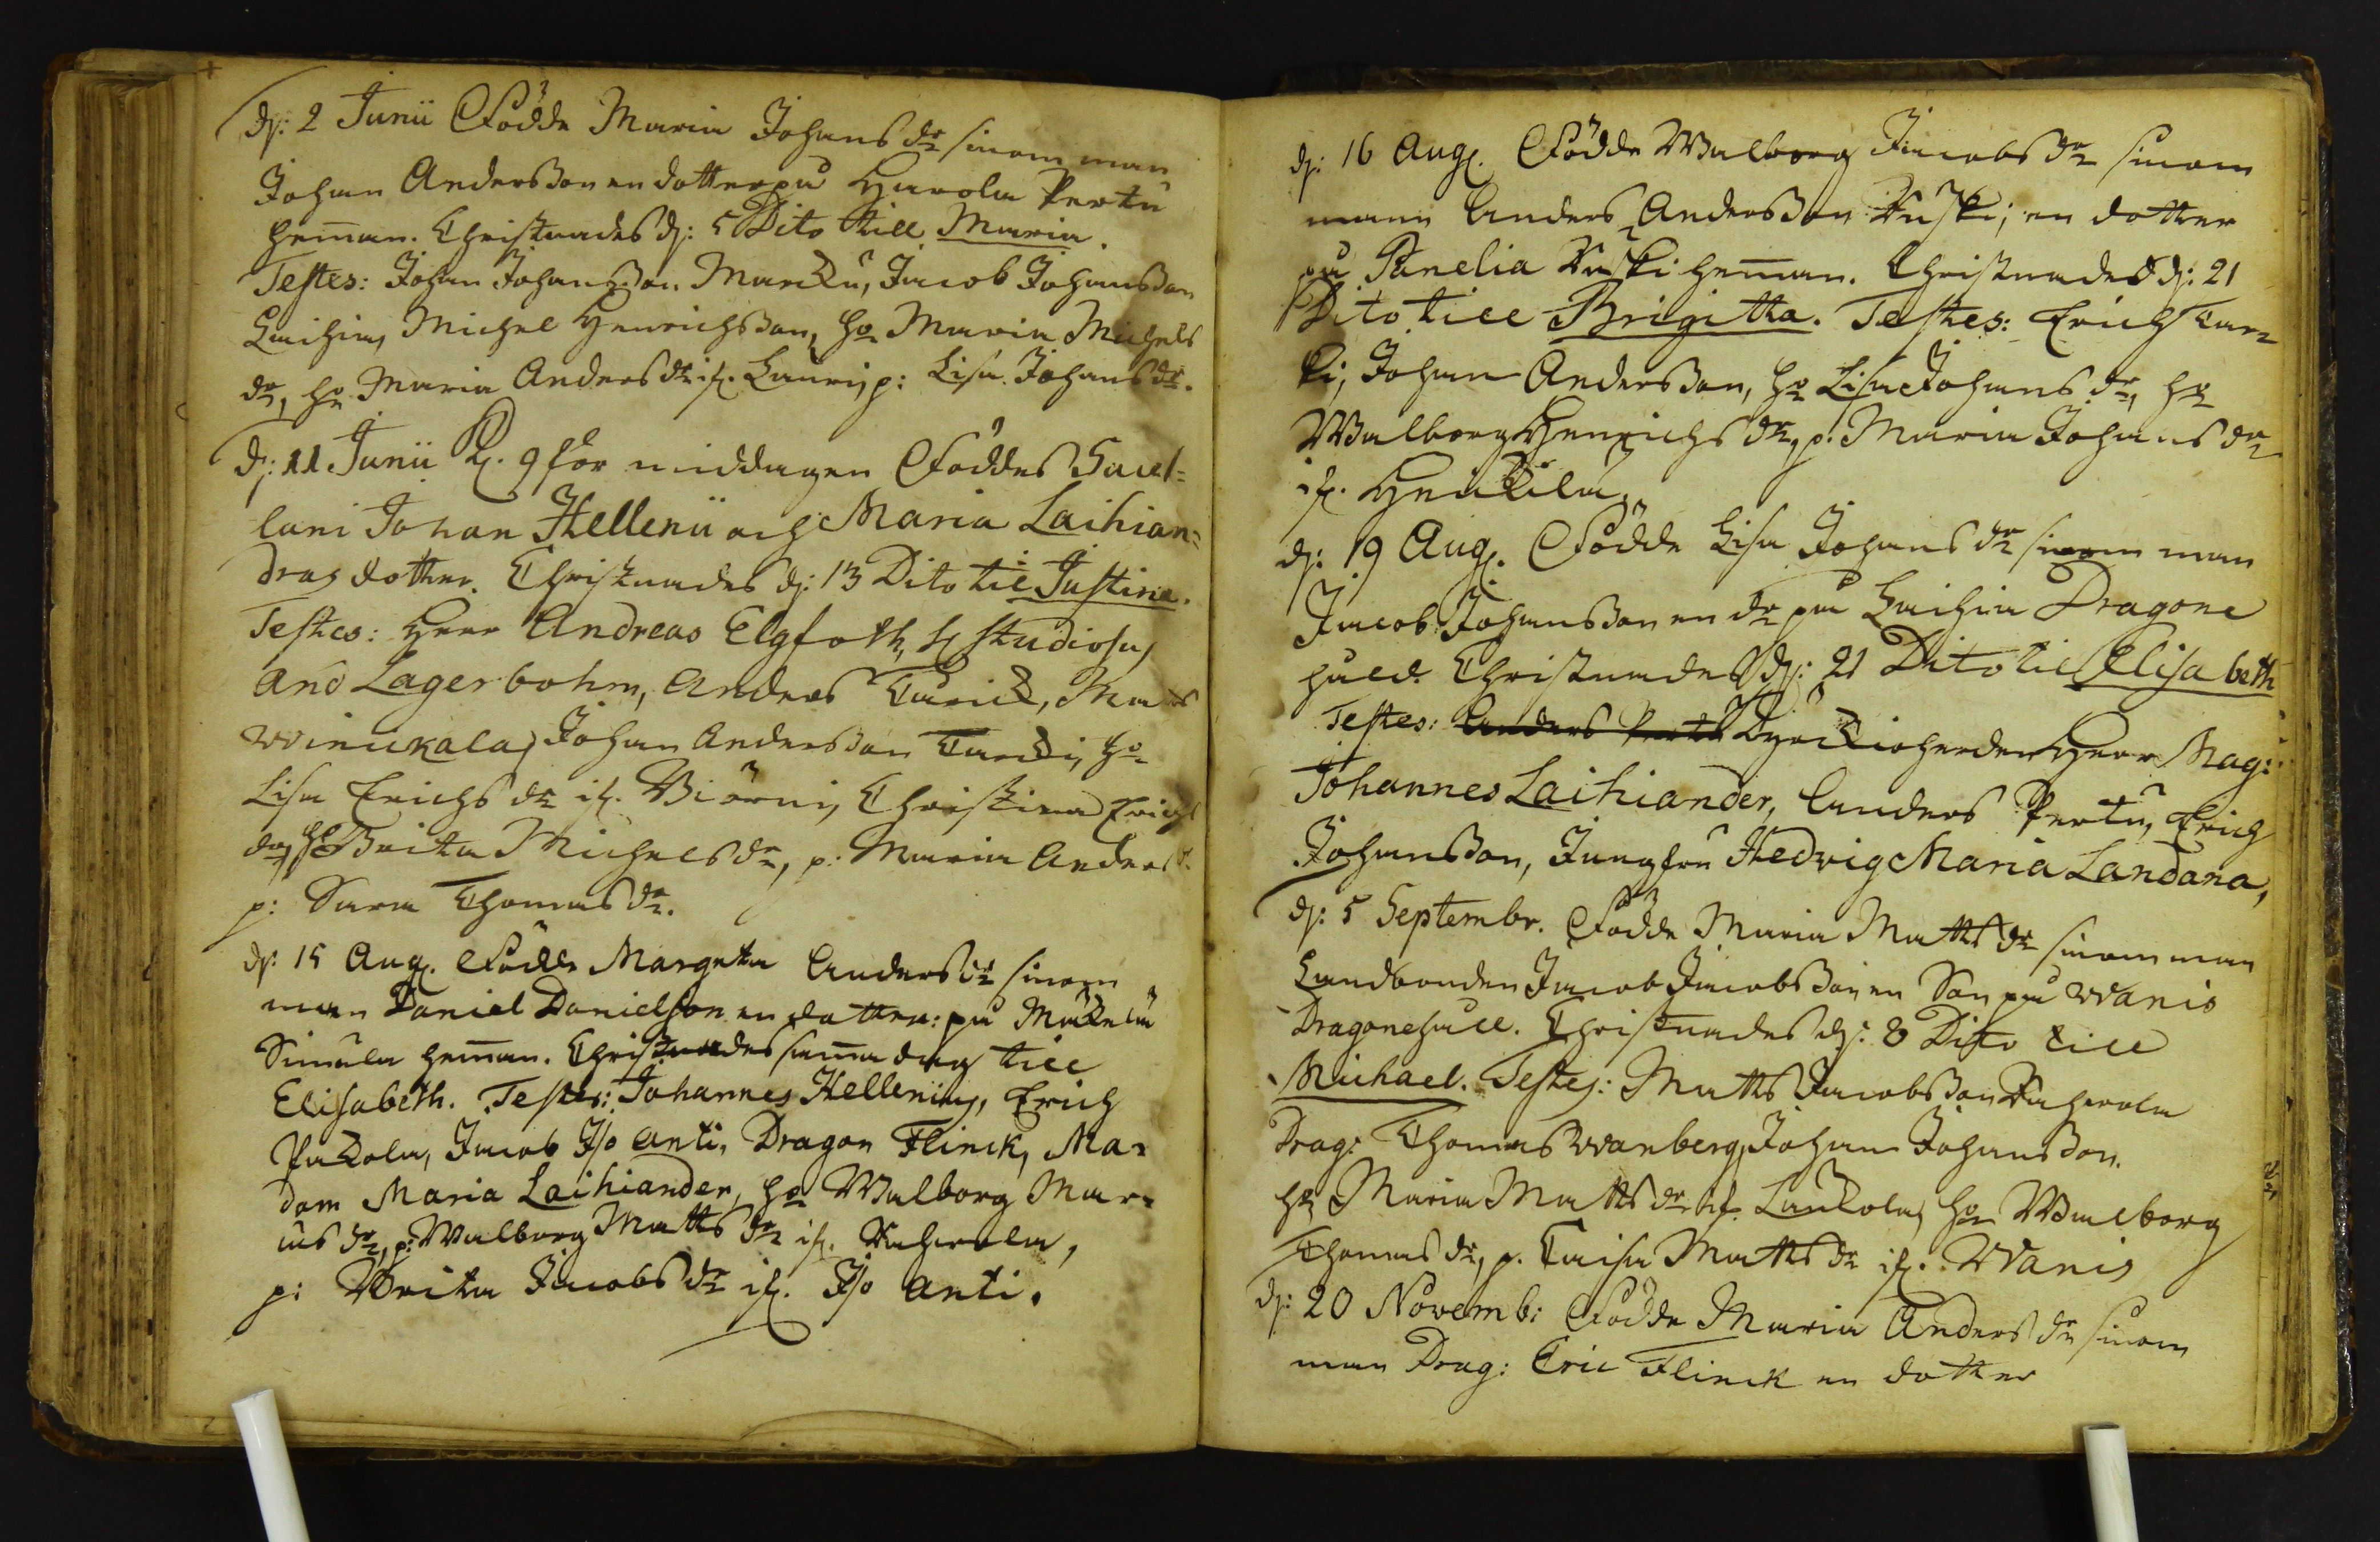 d: 2 Junii Födde Maria Johans dr sinom man
Johan Andersson en dotter på Harola Pertu
heman. Christnades d: 5 Dito till Maria.
Testes: Johan Johansson Marcku, Jacob Johansson
Laihia, Michel Henrichsson, ho Maria Michels
dr, ho Maria Anders dr if. Lauri, p: Lisa Johans dr.
d: 11 Junii Kl. 9 för middagen Föddes Sacel=
lani Johan Hellenii och Maria Laihian=
dras dotter. Christnades d: 13 Dito til Justina.
Testes: Herr Andreas Elgfoth, H studiosus
And Lagerbohm, Anders Turick, Mats
Winickala, Johan Andersson Turcki, ho
Lisa Erichs dr if. Biörni, Christina Erichs
dr, ho Brita Michels dr, p: Maria Anders dr
p: Sara Thomas dr.
d: 15 Aug. Födde Margeta Anders dr sinom
man Daniel Danielson en dotter: på Mäkelä
Simula heman. Christnades samma dag till
Elisabeth. Testes: Johannes Hellenius, Erich
Packola, Jacob Iso Anti, Dragon Flinck, Ma=
dam Maria Laihiander, ho Walborg Mar=
cus dr, p: Walborg Matts dr if. Kaharola,
p: Brita Jacobs dr if. Iso Anti.
d: 16 Aug. Födde Walborg Jacobs dr sinom
mann Anders Andersson Kuski; en dotter
på Panelia Kuski heman. Christnades d: 21
Dito till Brigitta. Testes: Erich Tur=
ki, Johan Andersson, ho Lisa Johans dr, ho
Walborg Henrichs dr, p: Maria Johans dr
if. Heickilä.
d: 19 Aug. Födde Lisa Johans dr sinom man
Jacob Johansson en dr på Laihia Dragone
håld. Christnades d: 21 Dito til Elisabeth
Testes: Anders Pertu Kyrckioherden Herr Mag:
Johannes Laihiander, Anders Pertu, Erich
Johansson, Jungfru Hedvig Maria Landana,
d: 5 Septembr. Födde Maria Matts dr sinom man
Landbonden Jacob Jacobsson en Son på Wanis
Dragonehåll. Christnades d: 8 Dito till
Michael. Testes: Matts Jacobsson Kaharola
Drag: Thomas Wanberg, Johan Johansson.
ho Maria Matts dr if. Lauckola, ho Walborg
Thomas dr, p. Caisa Matts dr if. Wanis
d: 20 Novemb: Födde Maria Anders dr sinom
man Drag: Eric Flinck en dotter